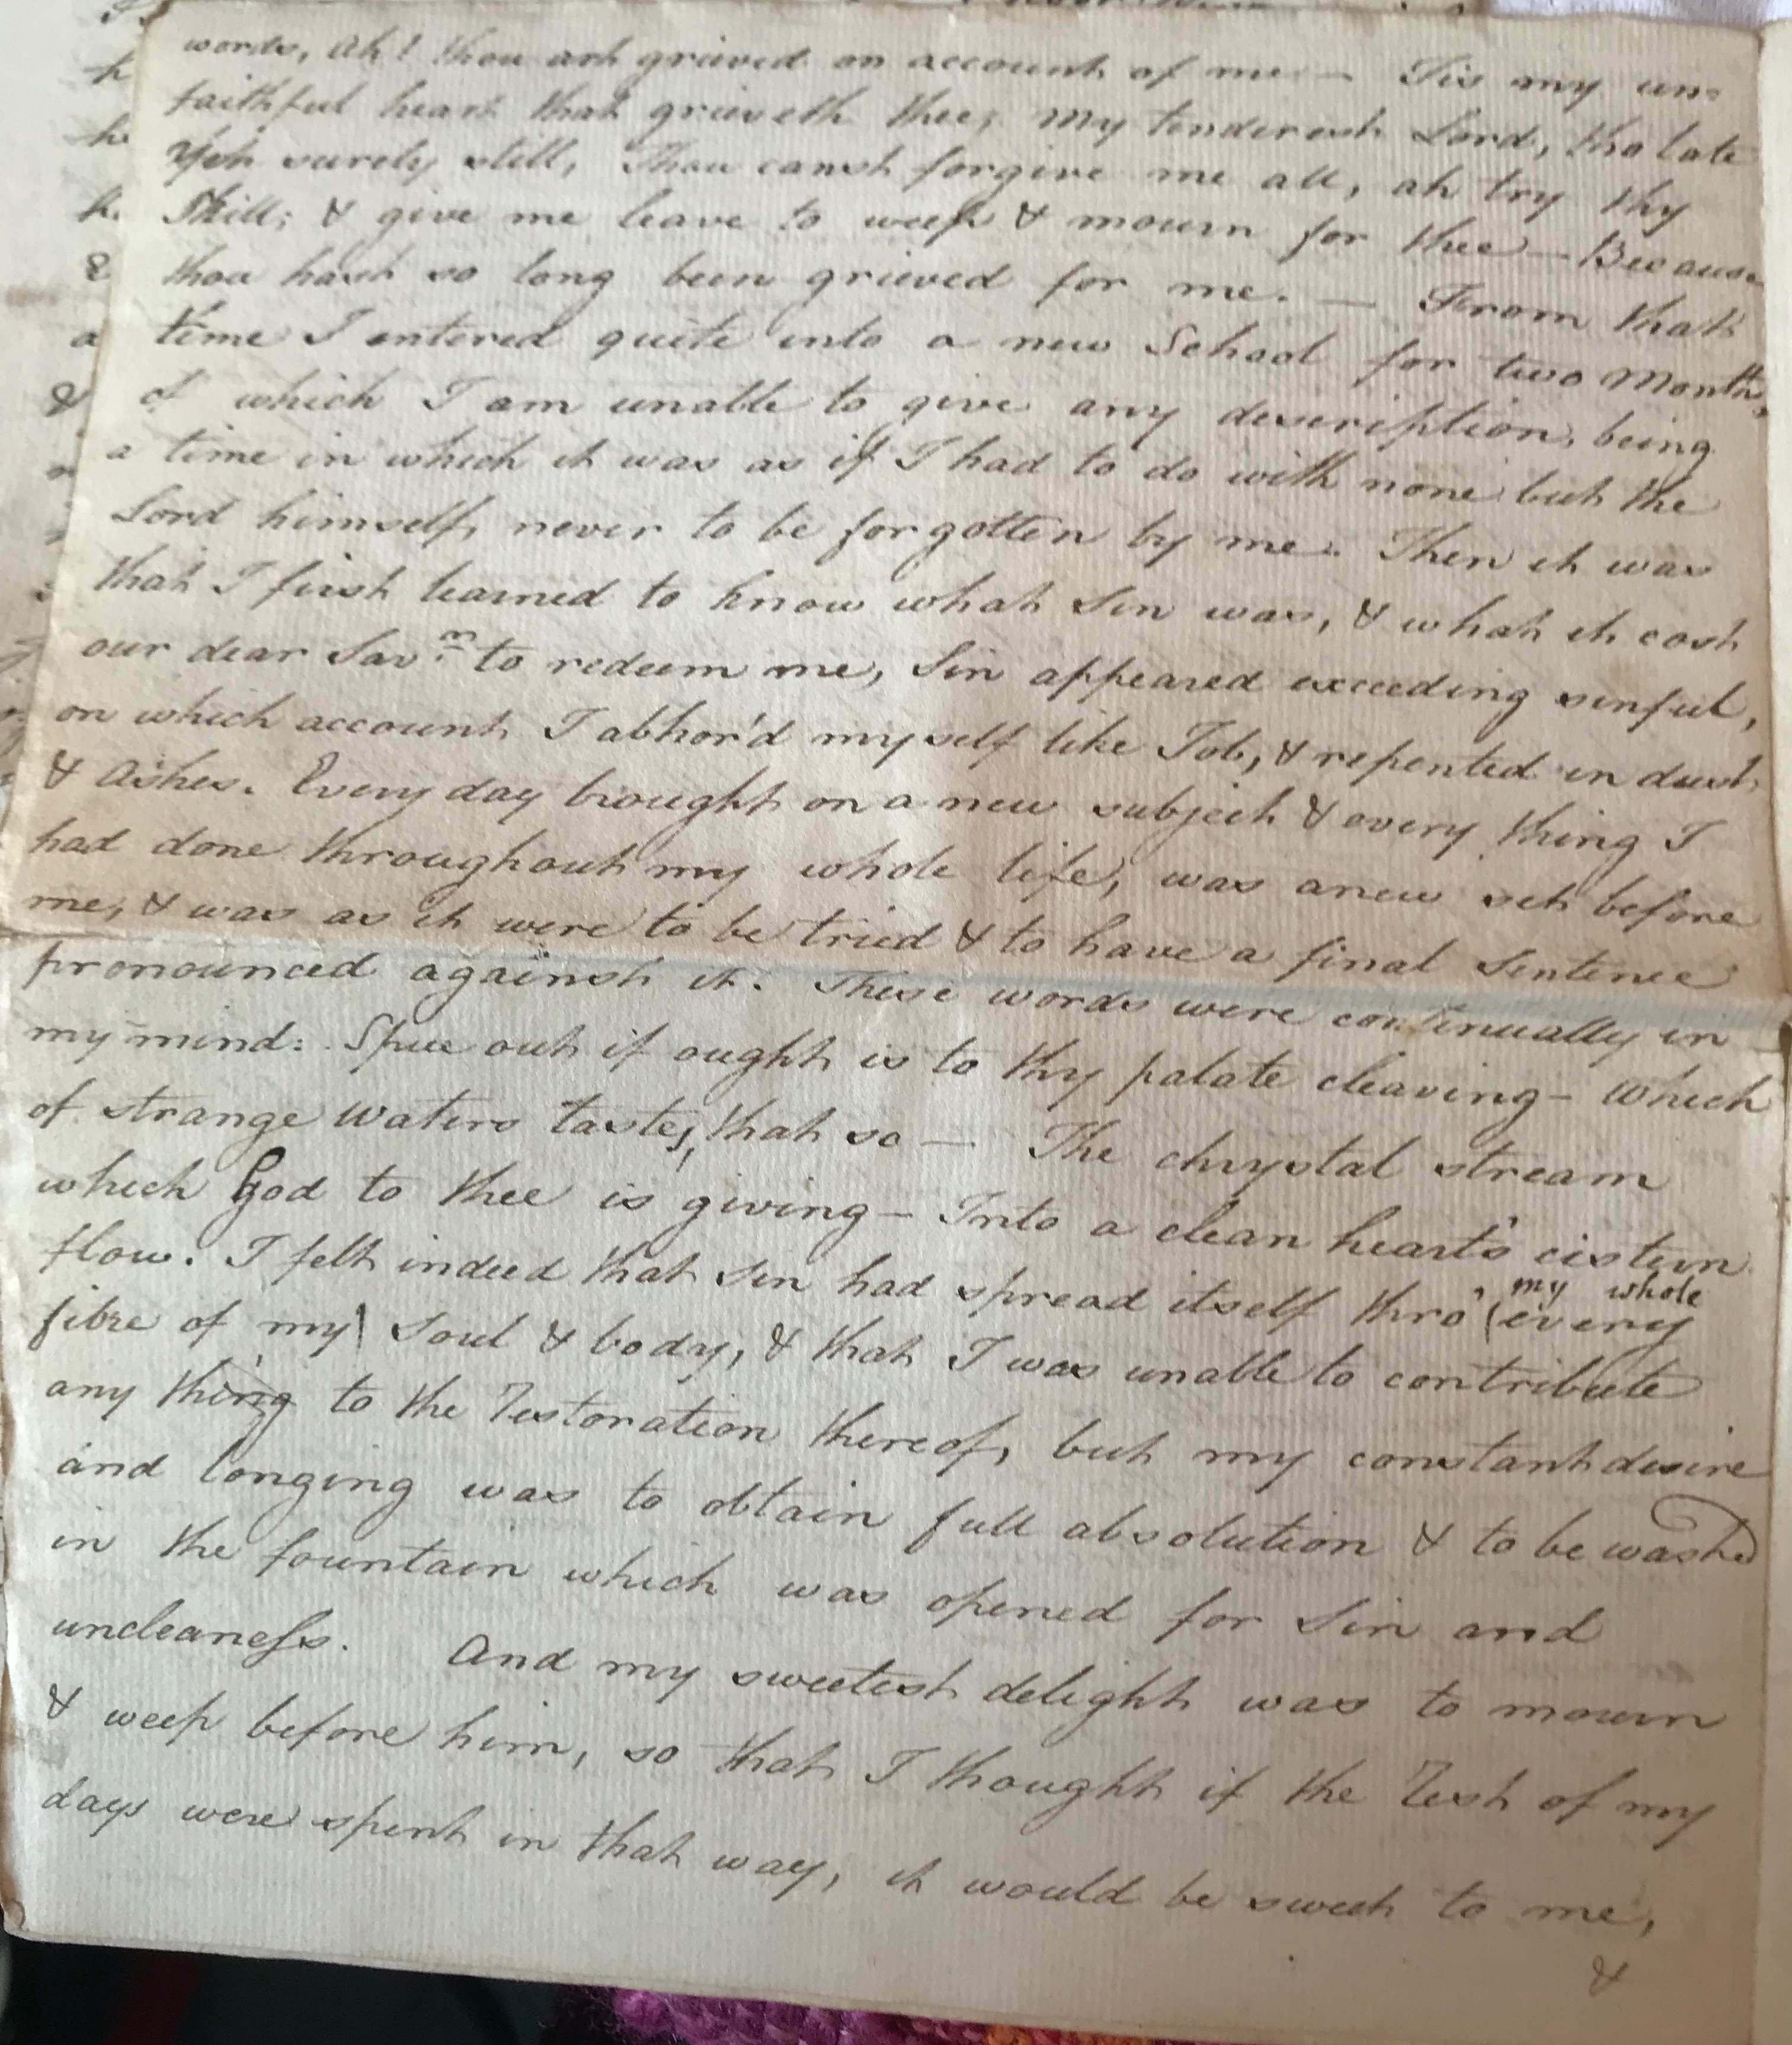 words, Ah! thou art grieved on account of me — Tis my un=
faithful heart that grieveth thee; My tenderest Lord, tho late
Yet surely still, Thou canst forgive me all, ah try thy
Skill; & give me leave to weep & mourn for thee — Because
thou hast so long been grieved for me. — From that
time I entered quite into a new School for two Months,
of which I am unable to give any description, being
a time in which it was as if I had to do with none but the
Lord himself, never to be forgotten by me. Then it was
that I first learned to know what Sin was, & what it cost
our dear Savr. to redeem me, Sin appeared exceeding sinful,
on which account I abhor'd myself like Job, & repented in dust
& Ashes. Every day brought on a new subject & every thing I
had done throughout my whole life, was anew set before
me, & was as it were to be tried & to have a final Sentence
pronounced against it. These words were continually in
my mind: Spue out if ought is to thy palate cleaving — Which
of strange Waters tastes, that so — The chrystal stream
which God to thee is giving — Into a clean heart's cistern
flow. I felt indeed that Sin had spread itself thro' (every
my whole
fibre of my) Soul & body, & that I was unable to contribute
any thing to the Restoration thereof, but my constant desire
and longing was to obtain full absolution & to be washed
in the fountain which was opened for Sin and
uncleaness. And my sweetest delight was to mourn
& weep before him, so that I thought if the Rest of my
days were spent in that way, it would be sweet to me,
&